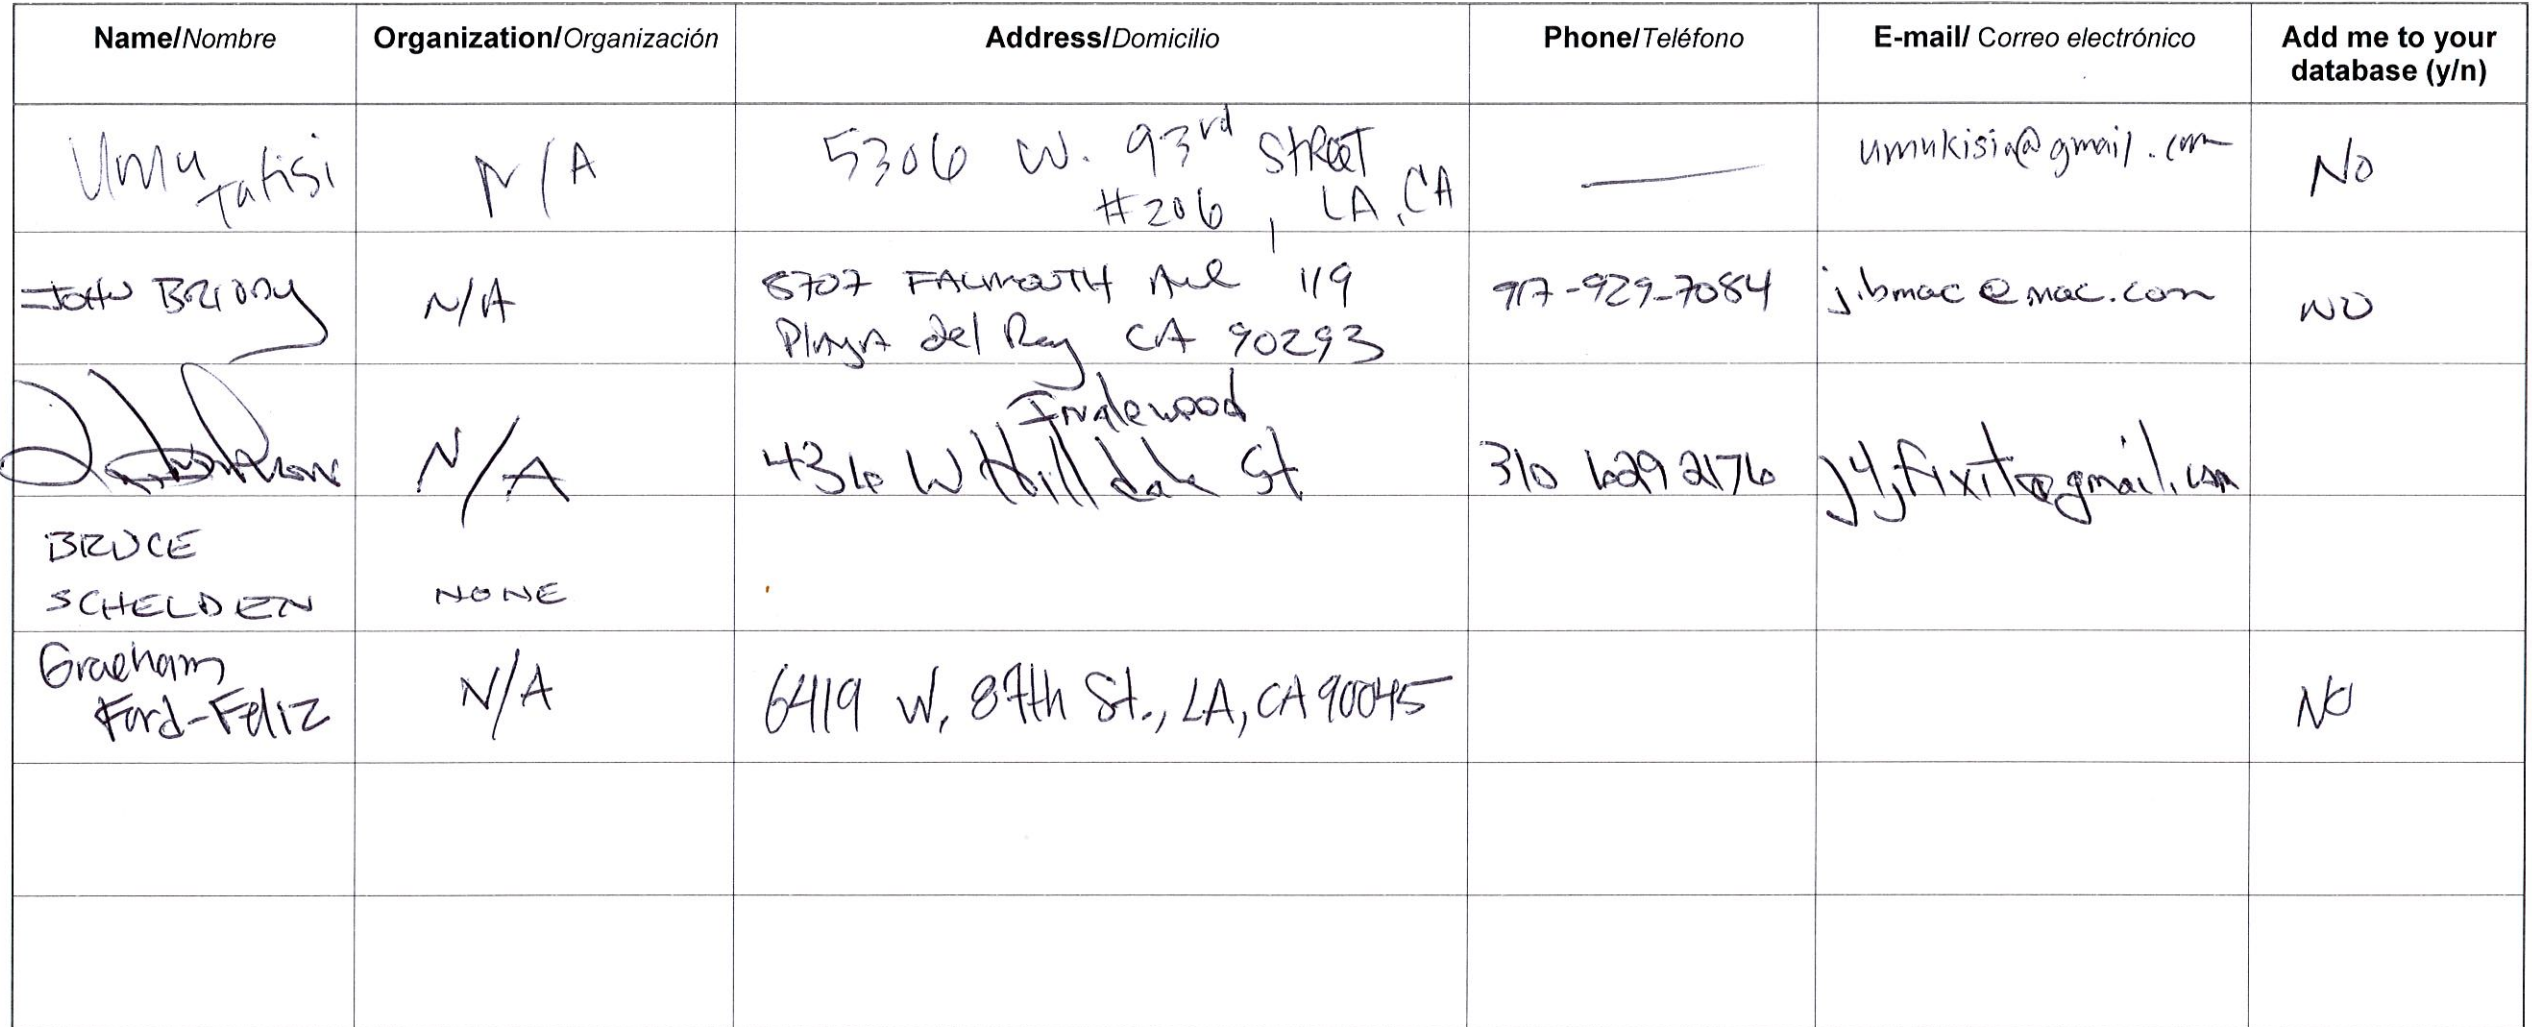 Name/Nombre Organization/Organización Address/Domicilio Phone/Teléfono E-mail/ Correo electrónico Add me to your
database (y/n)
Umu N/A 5306 W. 93rd Street umukisia@gmail.com No
Tatisi #206, LA, CA
JOHN BRIODY N/A 8707 FALMOUTH Ave 119 917-929-7084 j.bmac@mac.com NO
Playa del Rey CA 90293
Inglewood
N/A 436 W Hilldale St 310 629 2176 j4jfixit@gmail.com
BRUCE
SCHELDEN NONE
Graeham
Ford-Feliz N/A 6419 W. 87th St., LA, CA 90045 NO